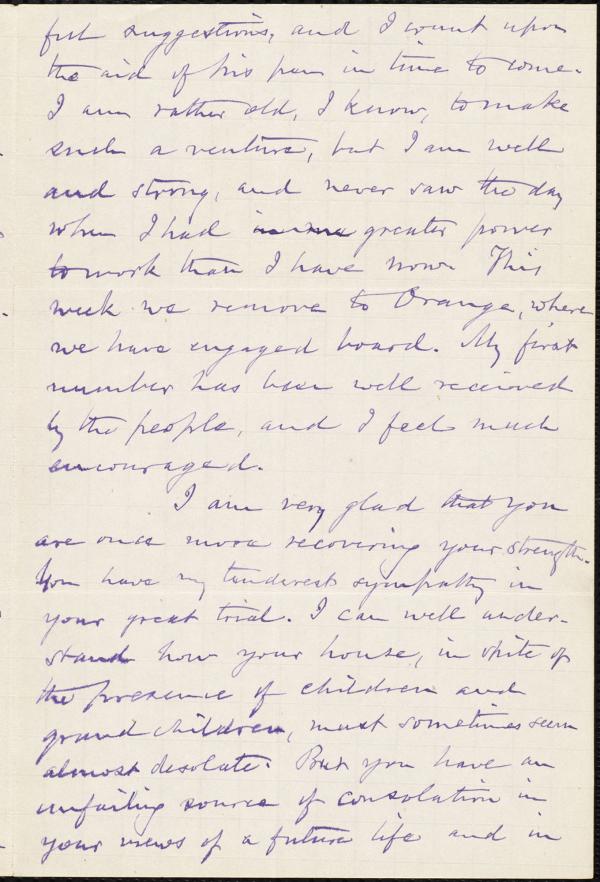 ful suggestions, and I count upon
the aid of his pen in time to come.
I am rather old, I know, to make
such a venture, but I am well
and strong, and never saw the day
when I had greater power
to work than I have now. This
week we remove to Orange, where
we have engaged board. My first
number has been well received
by the people, and I feel much
encouraged.
I am very glad that you
are once more recovering your strength.
You have my tenderest sympathy in
your great trial. I can well under-
stand how your house, in spite of
the presence of children and
grand children, must sometimes seem
almost desolate. But you have an
unfailing source of consolation in
your views of a future life and in